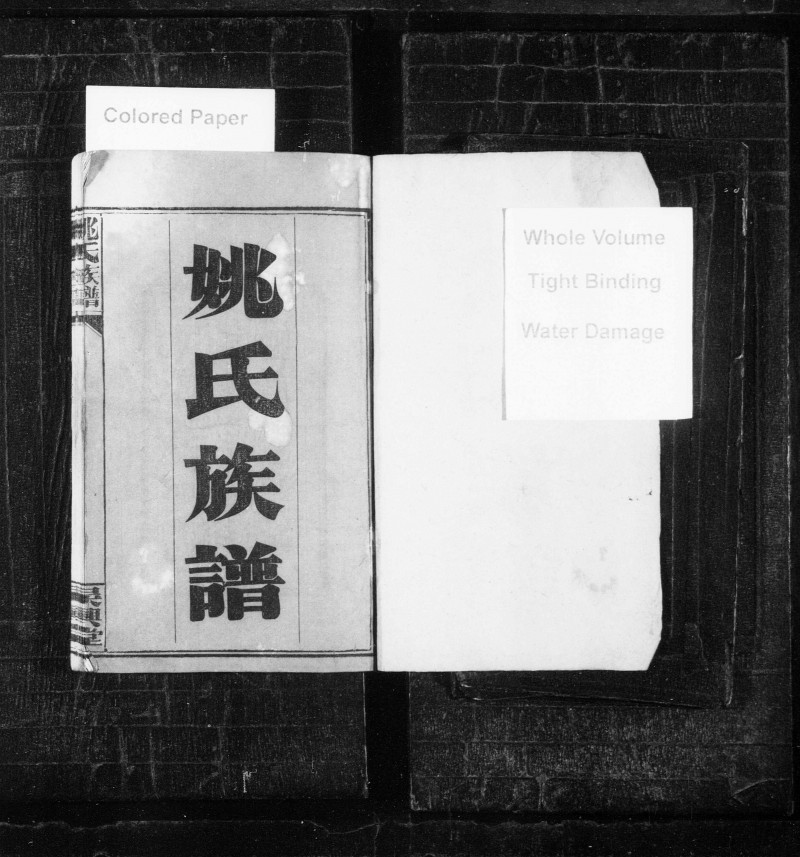 Colored Paper
Whole Volume
Tight Binding
Water Damage
姚氏族譜
姚氏族譜
吳興堂